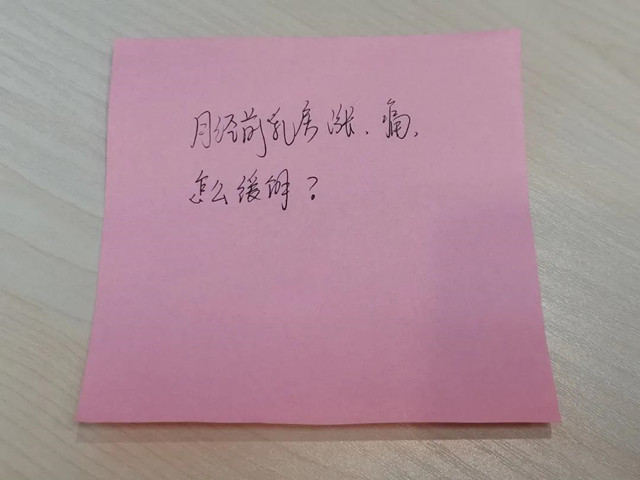 月经前乳房涨、痛,
怎么缓解?